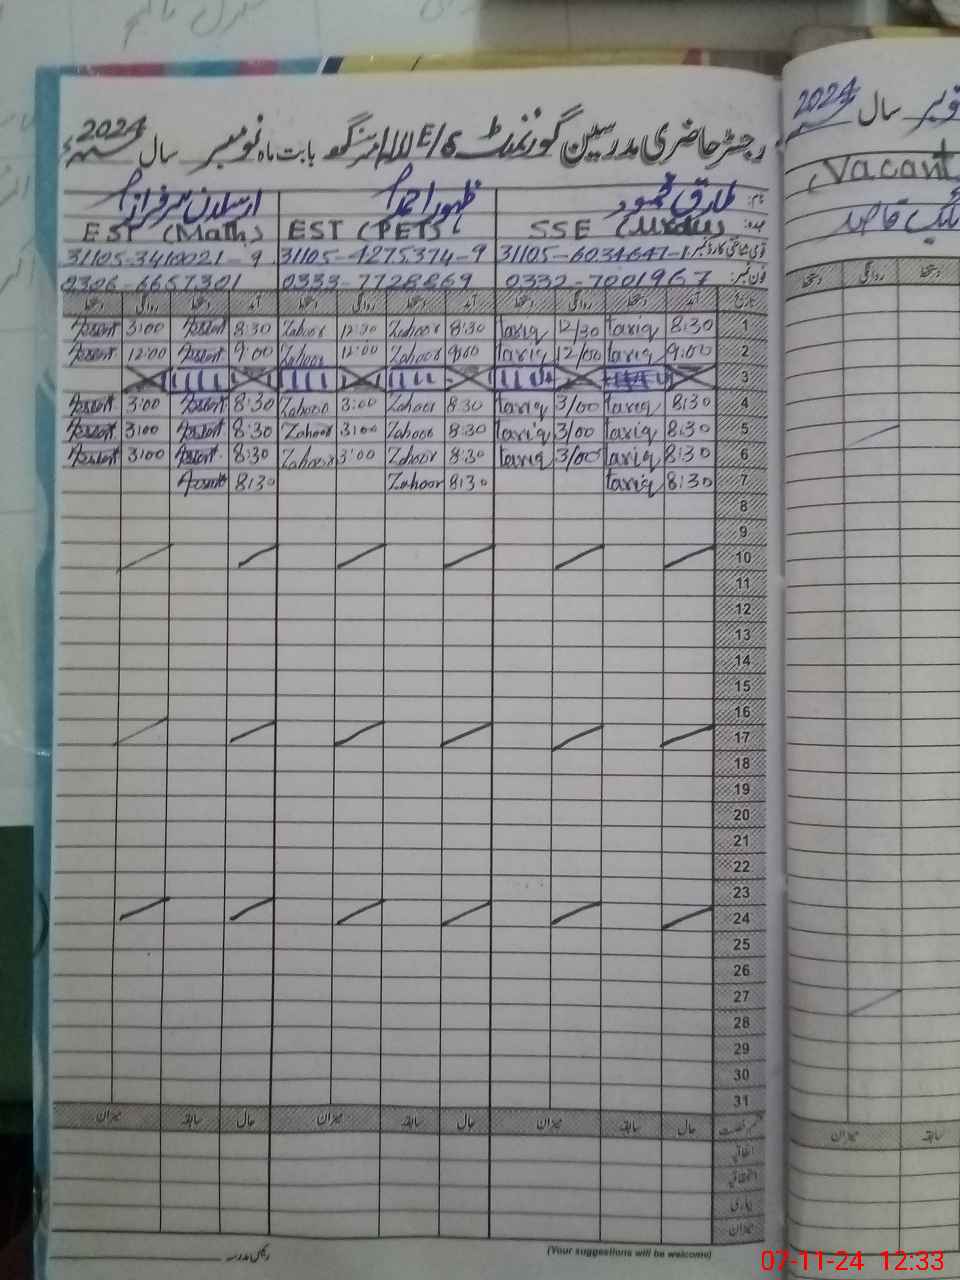 رجسٹر حاضری مدرسین گورنمنٹ 6/E بابت ماہ نومبر سال 2024ء
نام: طارق محمود ظہور احمد ارسلان سرفراز
عہدہ: SSE (Urdu) EST (PET) EST (Math)
قومی شناختی کارڈ نمبر 31105-6034647-1 31105-4275374-9 31105-3419021-9
فون نمبر: 0332-7001967 0333-7728869 0306-6657301
تاریخ آمد دستخط روانگی دستخط آمد دستخط روانگی دستخط آمد دستخط روانگی دستخط
1 8:30 tariq 12/30 tariq 8:30 Zahoor 12:30 Zahoor 8:30 3:00
2 9:00 tariq 12/00 tariq 9:00 Zahoor 12:00 Zahoor 9:00 12:00
3
4 8:30 tariq 3/00 tariq 8:30 Zahoor 3:00 Zahoor 8:30 3:00
5 8:30 tariq 3/00 tariq 8:30 Zahoor 3:00 Zahoor 8:30 3:00
6 8:30 tariq 3/00 tariq 8:30 Zahoor 3:00 Zahoor 8:30 3:00
7 8:30 tariq 8:30 Zahoor 8:30
8
9
10
11
12
13
14
15
16
17
18
19
20
21
22
23
24
25
26
27
28
29
30
31
حال سابقہ میزان حال سابقہ میزان حال سابقہ میزان
اتفاقیہ
استحقاقیہ
بیماری
میزان
(Your suggestions will be welcome)
رئیس مدرسہ
نومبر سال 2024ء
(Vacant
نائب قاصد
دستخط روانگی دستخط
سابقہ میزان
07-11-24 12:33